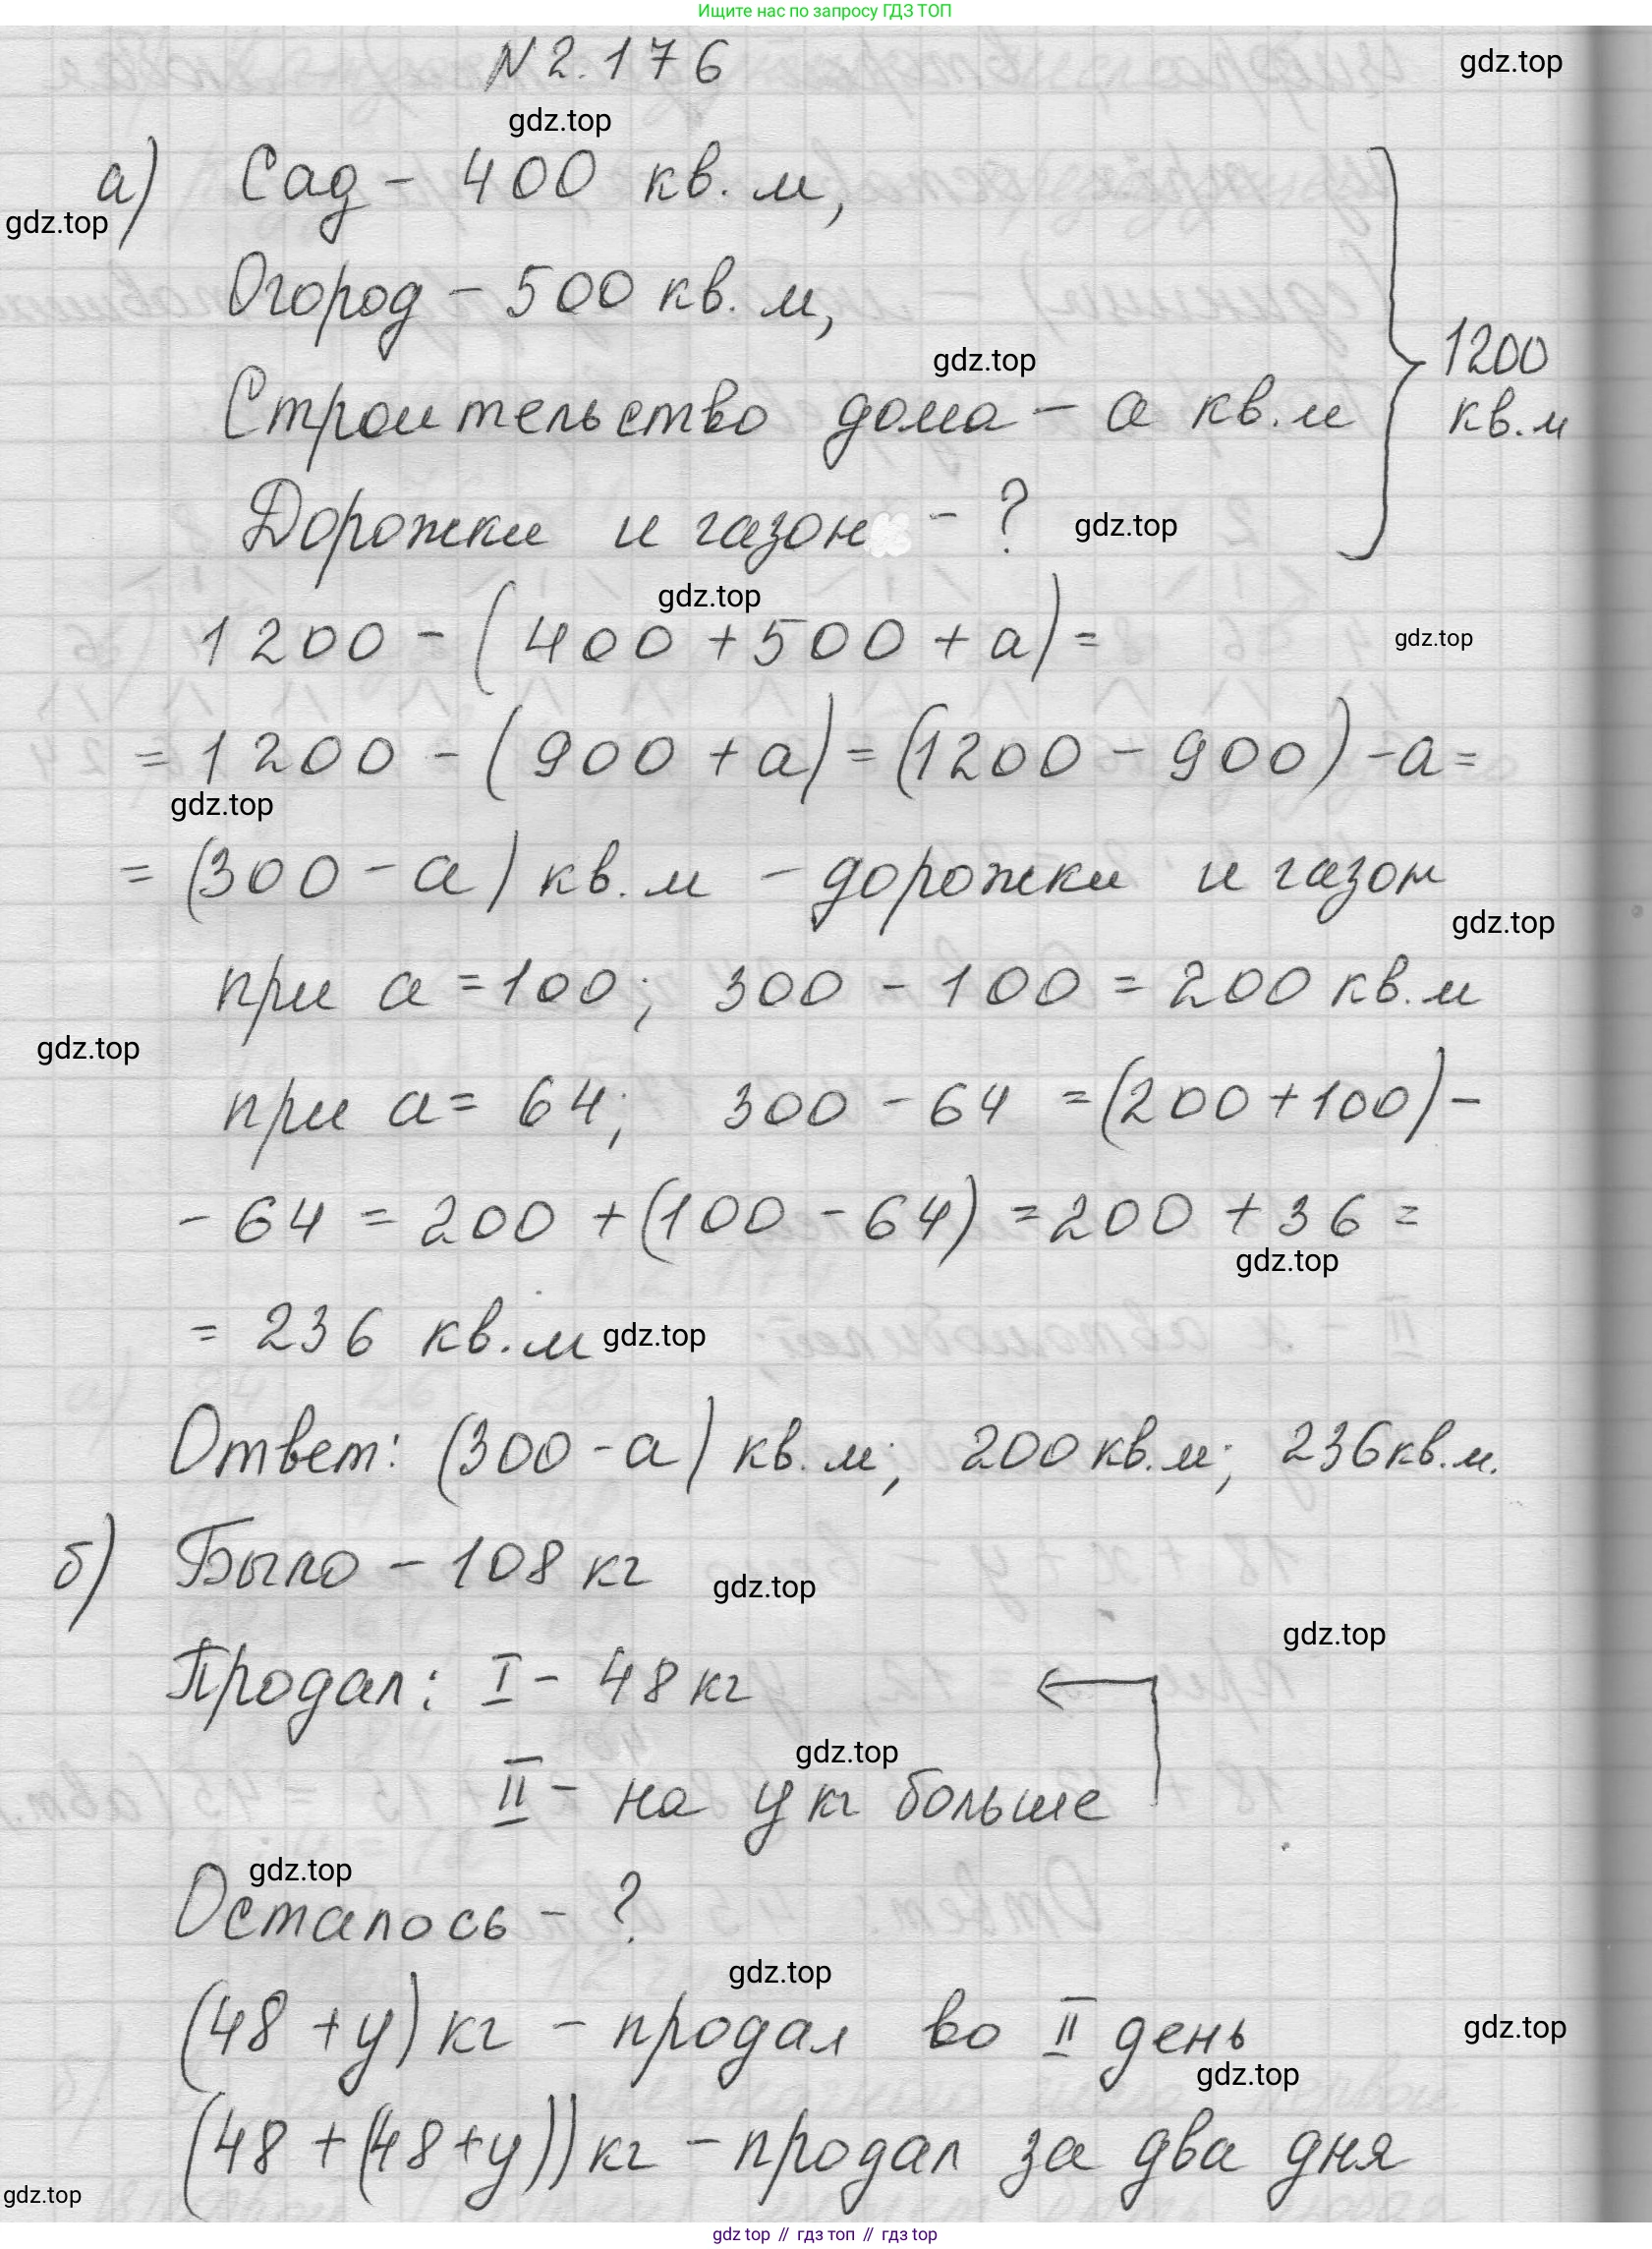 Ищите нас по запросу ГДЗ ТОП
N 2.176
gdz.top
gdz.top
а) Сад - 400 кв. м,
gdz.top
Огород - 500 кв. м,
gdz.top
1200
Строительство дома - а кв. м
кв. м
Дорожки и газон - ?
gdz.top
gdz.top
1200 - (400 + 500 + а) =
gdz.top
= 1200 - (900 + а) = (1200 - 900) - а =
gdz.top
= (300 - а) кв. м - дорожки и газон
gdz.top
при а = 100; 300 - 100 = 200 кв. м
gdz.top
при а = 64; 300 - 64 = (200 + 100) -
- 64 = 200 + (100 - 64) = 200 + 36 =
gdz.top
= 236 кв. м
gdz.top
Ответ: (300 - а) кв. м; 200 кв. м; 236 кв. м.
б) Было - 108 кг
gdz.top
gdz.top
Продал: I - 48 кг
gdz.top
II - на у кг больше
gdz.top
Осталось - ?
gdz.top
(48 + у) кг - продал во II день
gdz.top
gdz.top
(48 + (48 + у)) кг - продал за два дня
gdz.top
gdz top // гдз топ // гдз top